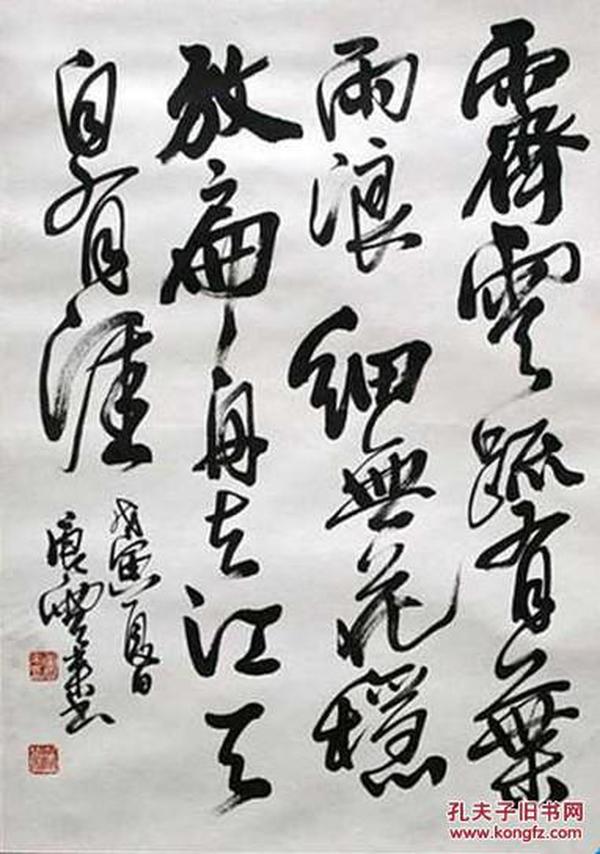 霽雲疏有葉
雨浪細無花穩
放扁舟去江天
自有涯
戊寅夏日
孔夫子旧书网
www.kongfz.com